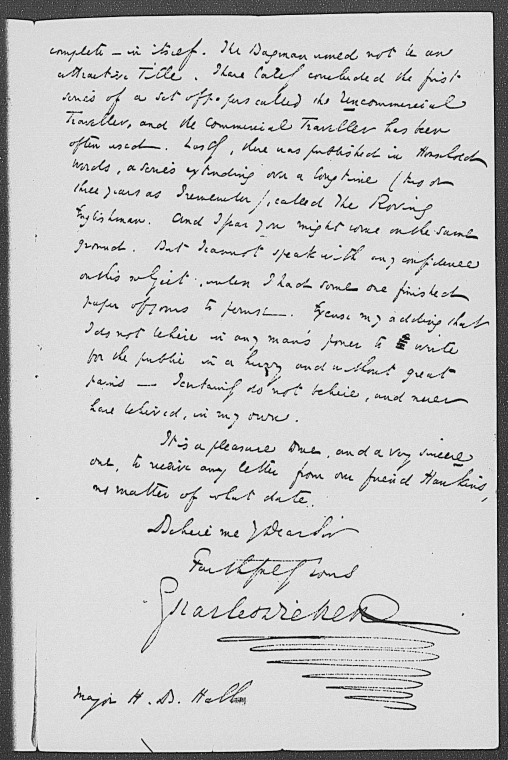 complete — in itself. The Bagman need not be an
attractive Title. I have lately concluded the first
series of a set of papers called the Uncommercial
Traveller, and the Commercial Traveller has been
often used. Lastly, there was published in Household
Words, a series extending over a long time (two or
three years as I remember), called The Roving
Englishman. And I fear you might come on the same
ground. But I cannot speak with any confidence
on this subject, unless I had some one finished
paper of yours to peruse. Excuse my adding that
I do not believe in any man's power to write
for the public in a hurry and without great
pains — I certainly do not believe, and never
have believed, in my own.
It is a pleasure to me, and a very sincere
one, to receive any letter from our friend Hawkins,
no matter of what date.
Believe me Dear Sir
Faithfully Yours
Charles Dickens
Major H. B. Hall